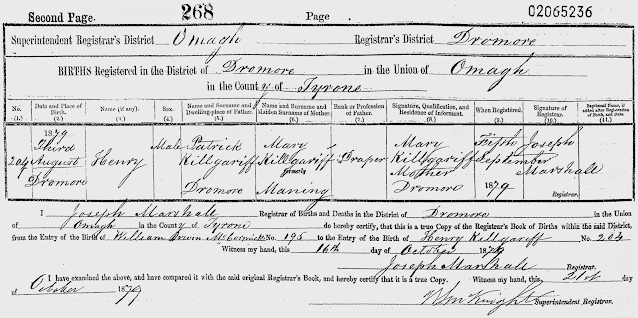 Second Page. 268 Page 02065236
Superintendent Registrar's District Omagh Registrar's District Dromore
BIRTHS Registered in the District of Dromore in the Union of Omagh
in the County of Tyrone
No. Date and Place of Birth. Name (if any). Sex. Name and Surname and Dwelling-place of Father. Name and Surname and Maiden Surname of Mother. Rank or Profession of Father. Signature, Qualification, and Residence of Informant. When Registered. Signature of Registrar. Baptismal Name, if added after Registration of Birth, and Date.
(1.) (2.) (3.) (4.) (5.) (6.) (7.) (8.) (9.) (10.) (11.)
1879
Third Male Patrick Mary Mary Fifth Joseph
204 August Henry Killgariff Killgariff Draper Killgariff September Marshall
formerly Mother
Dromore Dromore Maning Dromore 1879 Registrar.
I Joseph Marshall Registrar of Births and Deaths in the District of Dromore in the Union
of Omagh in the County of Tyrone do hereby certify, that this is a true Copy of the Registrar's Book of Births within the said District,
from the Entry of the Birth of William Irwin McCormick No. 195 to the Entry of the Birth of Henry Killgariff No. 204
Witness my hand, this 16th day of October 1879
Joseph Marshall Registrar.
I have examined the above, and have compared it with the said original Registrar's Book, and hereby certify that it is a true Copy. Witness my hand, this 21st day
of October 1879
Wm Knight Superintendent Registrar.